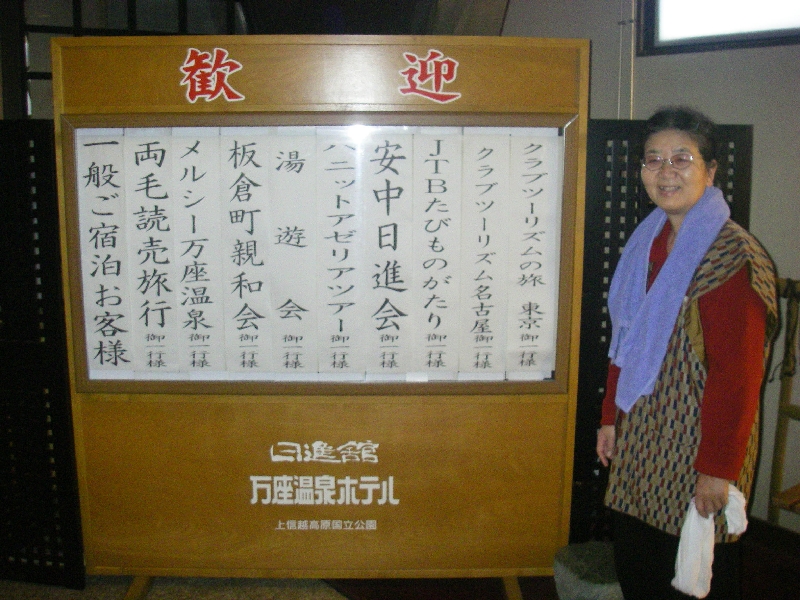 歓迎
クラブツーリズムの旅 東京 御一行様
クラブツーリズム名古屋 御一行様
JTBたびものがたり 御一行様
安中日進会 御一行様
ハニットアゼリアツアー 御一行様
湯遊会 御一行様
板倉町親和会 御一行様
メルシー万座温泉 御一行様
両毛読売旅行 御一行様
一般ご宿泊お客様
日進舘
万座温泉ホテル
上信越高原国立公園